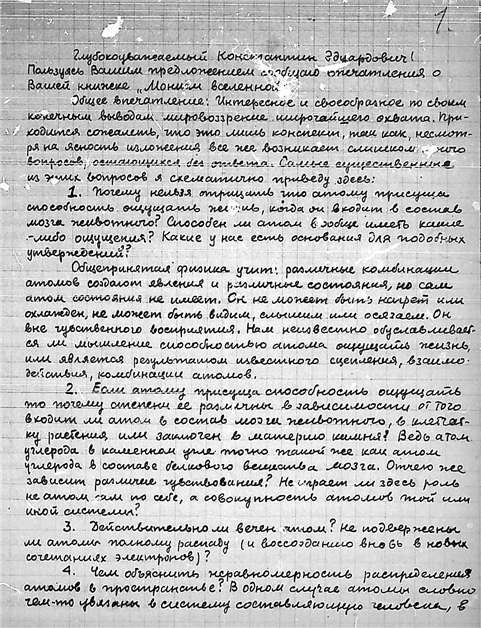 1.
Глубокоуважаемый Константин Эдуардович!
Пользуясь Вашим предложением сообщаю впечатления о
Вашей книжке „Монизм вселенной"
Общее впечатление: Интересное и своеобразное по своим
конечным выводам мировоззрение широчайшего охвата. При-
ходится сожалеть, что это лишь конспект, так как, несмот-
ря на ясность изложения все же возникает слишком много
вопросов, остающихся без ответа. Самые существенные
из этих вопросов я схематично приведу здесь:
1. Почему нельзя отрицать что атому присуща
способность ощущать жизнь, когда он входит в состав
мозга животного? Способен ли атом вообще иметь какие
-либо ощущения? Какие у нас есть основания для подобных
утверждений?
Общепринятая физика учит: различные комбинации
атомов создают явления и различные состояния, но сам
атом состояния не имеет. Он не может быть нагрет или
охлажден, не может быть видим, слышим или осязаем. Он
вне чувственного восприятия. Нам неизвестно обуславливает-
ся ли мышление способностью атома ощущать жизнь,
или является результатом известного сцепления, взаимо-
действия, комбинации атомов.
2. Если атому присуща способность ощущать
то почему степени ее различны в зависимости от того
входит ли атом в состав мозга животного, в клетчат-
ку растения или заключен в материю камня? Ведь атом
углерода в каменном угле точно такой же как атом
углерода в составе белкового вещества мозга. Отчего же
зависит различие чувствования? Не играет ли здесь роль
не атом сам по себе, а совокупность атомов той или
иной системы?
3. Действительно ли вечен атом? Не подвержены
ли атомы полному распаду (и воссозданию вновь в новых
сочетаниях электронов)?
4. Чем объяснить неравномерность распределения
атомов в пространстве? В одном случае атомы словно
чем-то увязаны в систему составляющую человека, в